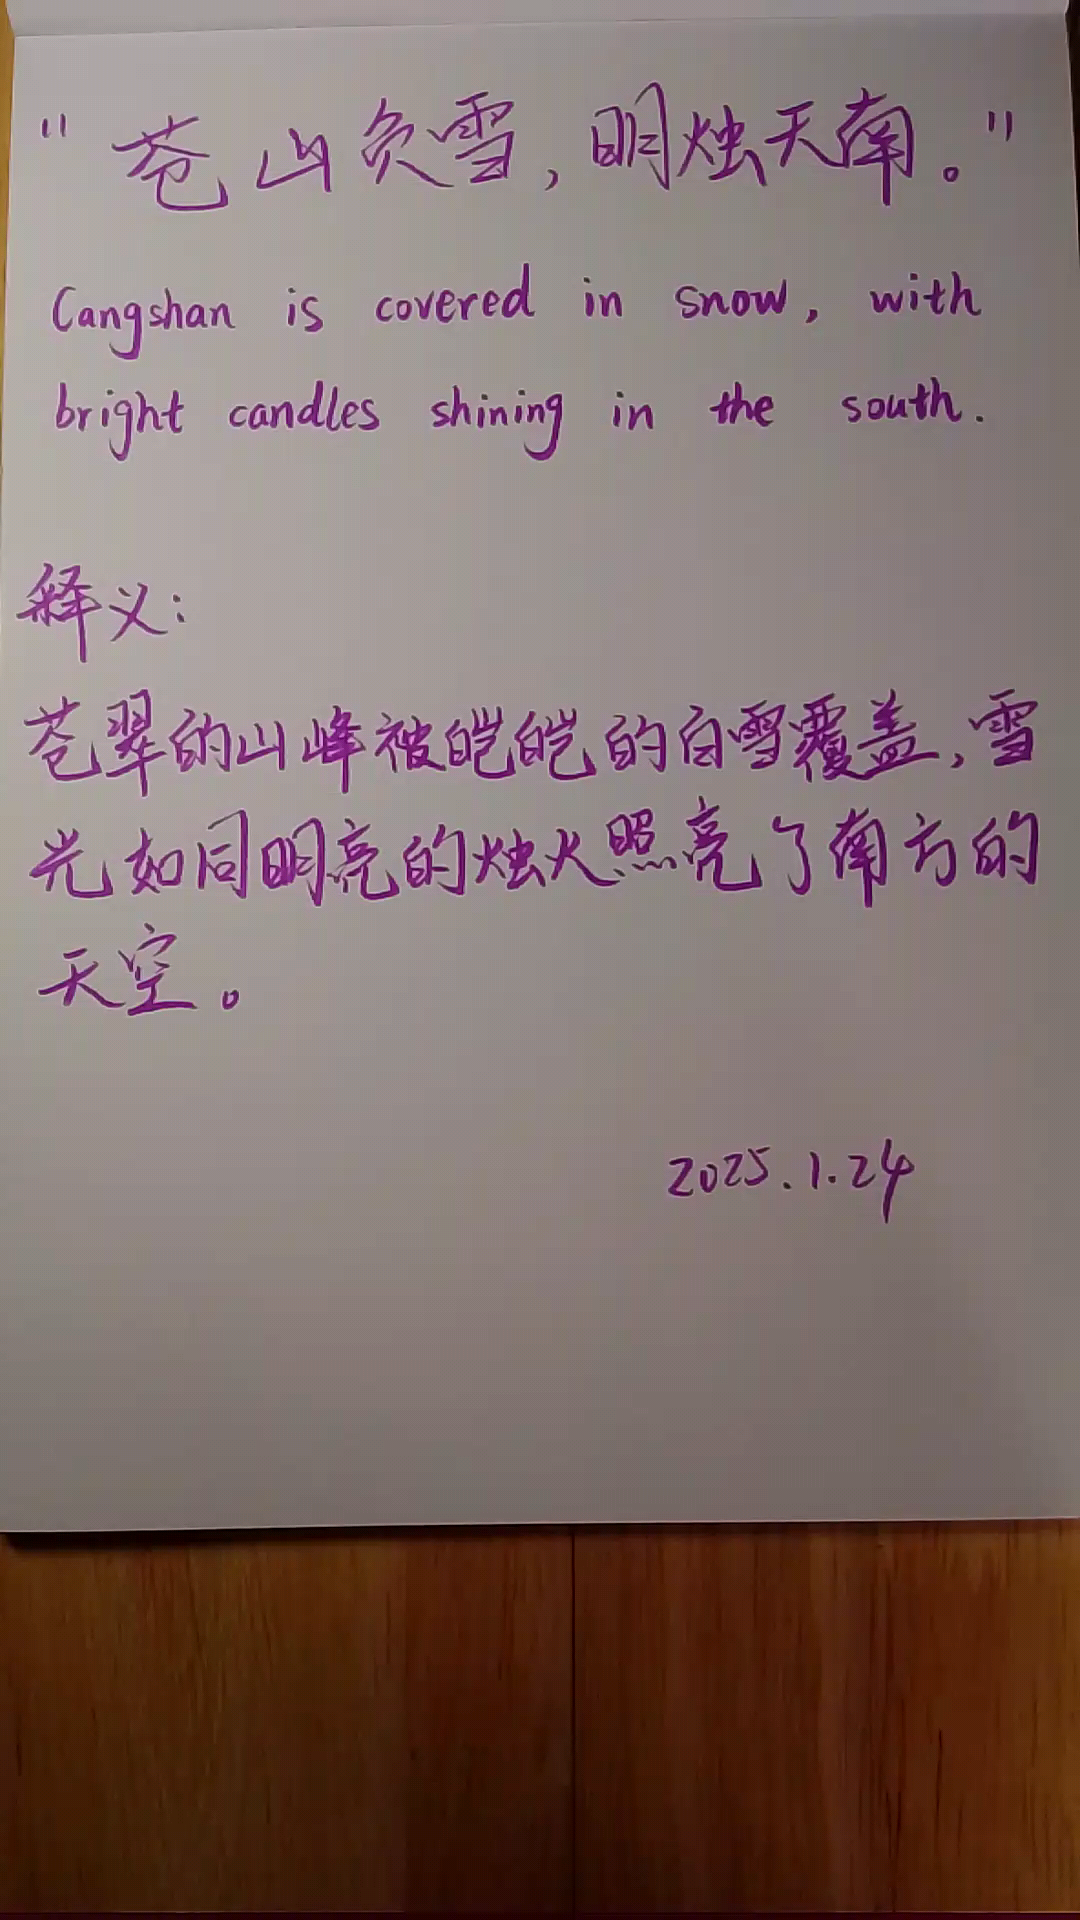 "苍山负雪，明烛天南。"
Cangshan is covered in snow, with
bright candles shining in the south.
释义：
苍翠的山峰被皑皑的白雪覆盖，雪
光如同明亮的烛火照亮了南方的
天空。
2025.1.24